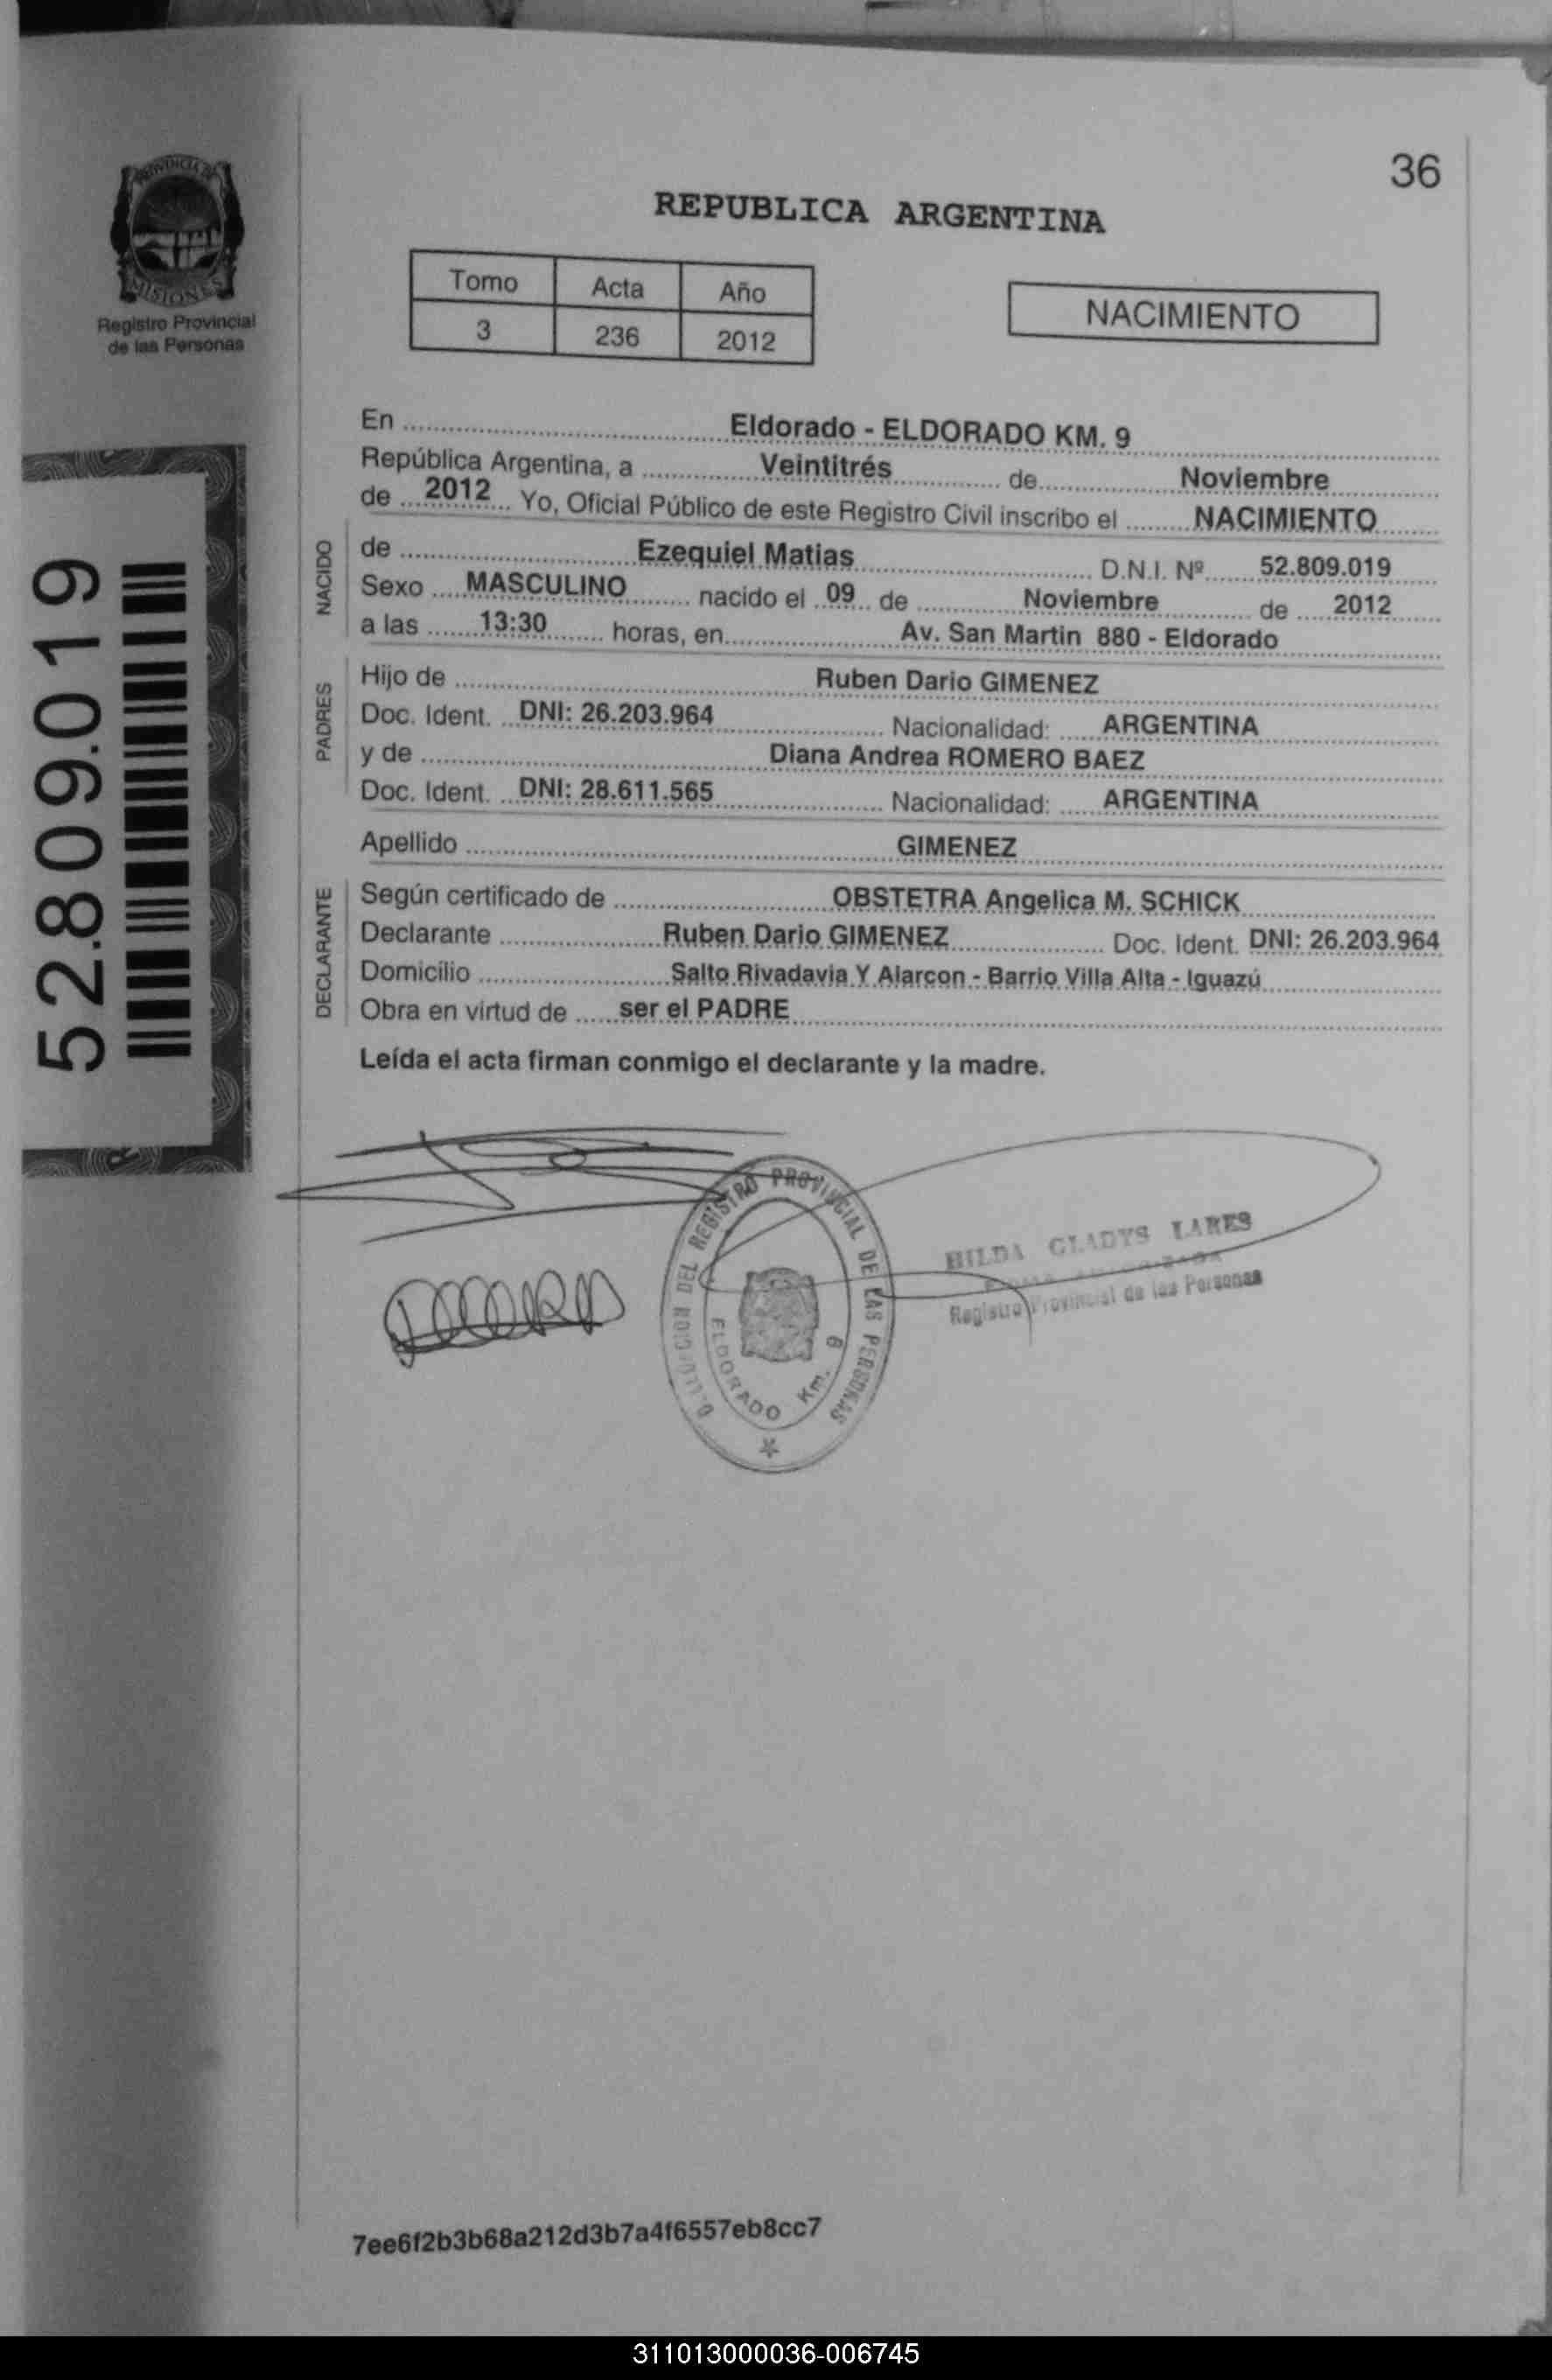 36
REPUBLICA ARGENTINA
PROVINCIA DE
MISIONES
Registro Provincial
de las Personas
Tomo Acta Año
3 236 2012
NACIMIENTO
52.809.019
En Eldorado - ELDORADO KM. 9
República Argentina, a Veintitrés de Noviembre
de 2012 Yo, Oficial Público de este Registro Civil inscribo el NACIMIENTO
NACIDO
de Ezequiel Matias D.N.I. Nº 52.809.019
Sexo MASCULINO nacido el 09 de Noviembre de 2012
a las 13:30 horas, en Av. San Martin 880 - Eldorado
PADRES
Hijo de Ruben Dario GIMENEZ
Doc. Ident. DNI: 26.203.964 Nacionalidad: ARGENTINA
y de Diana Andrea ROMERO BAEZ
Doc. Ident. DNI: 28.611.565 Nacionalidad: ARGENTINA
Apellido GIMENEZ
DECLARANTE
Según certificado de OBSTETRA Angelica M. SCHICK
Declarante Ruben Dario GIMENEZ Doc. Ident. DNI: 26.203.964
Domicilio Salto Rivadavia Y Alarcon - Barrio Villa Alta - Iguazú
Obra en virtud de ser el PADRE
Leída el acta firman conmigo el declarante y la madre.
DIRECCION DEL REGISTRO PROVINCIAL DE LAS PERSONAS
ELDORADO Km.
HILDA GLADYS LARES
Registro Provincial de las Personas
7ee6f2b3b68a212d3b7a4f6557eb8cc7
311013000036-006745